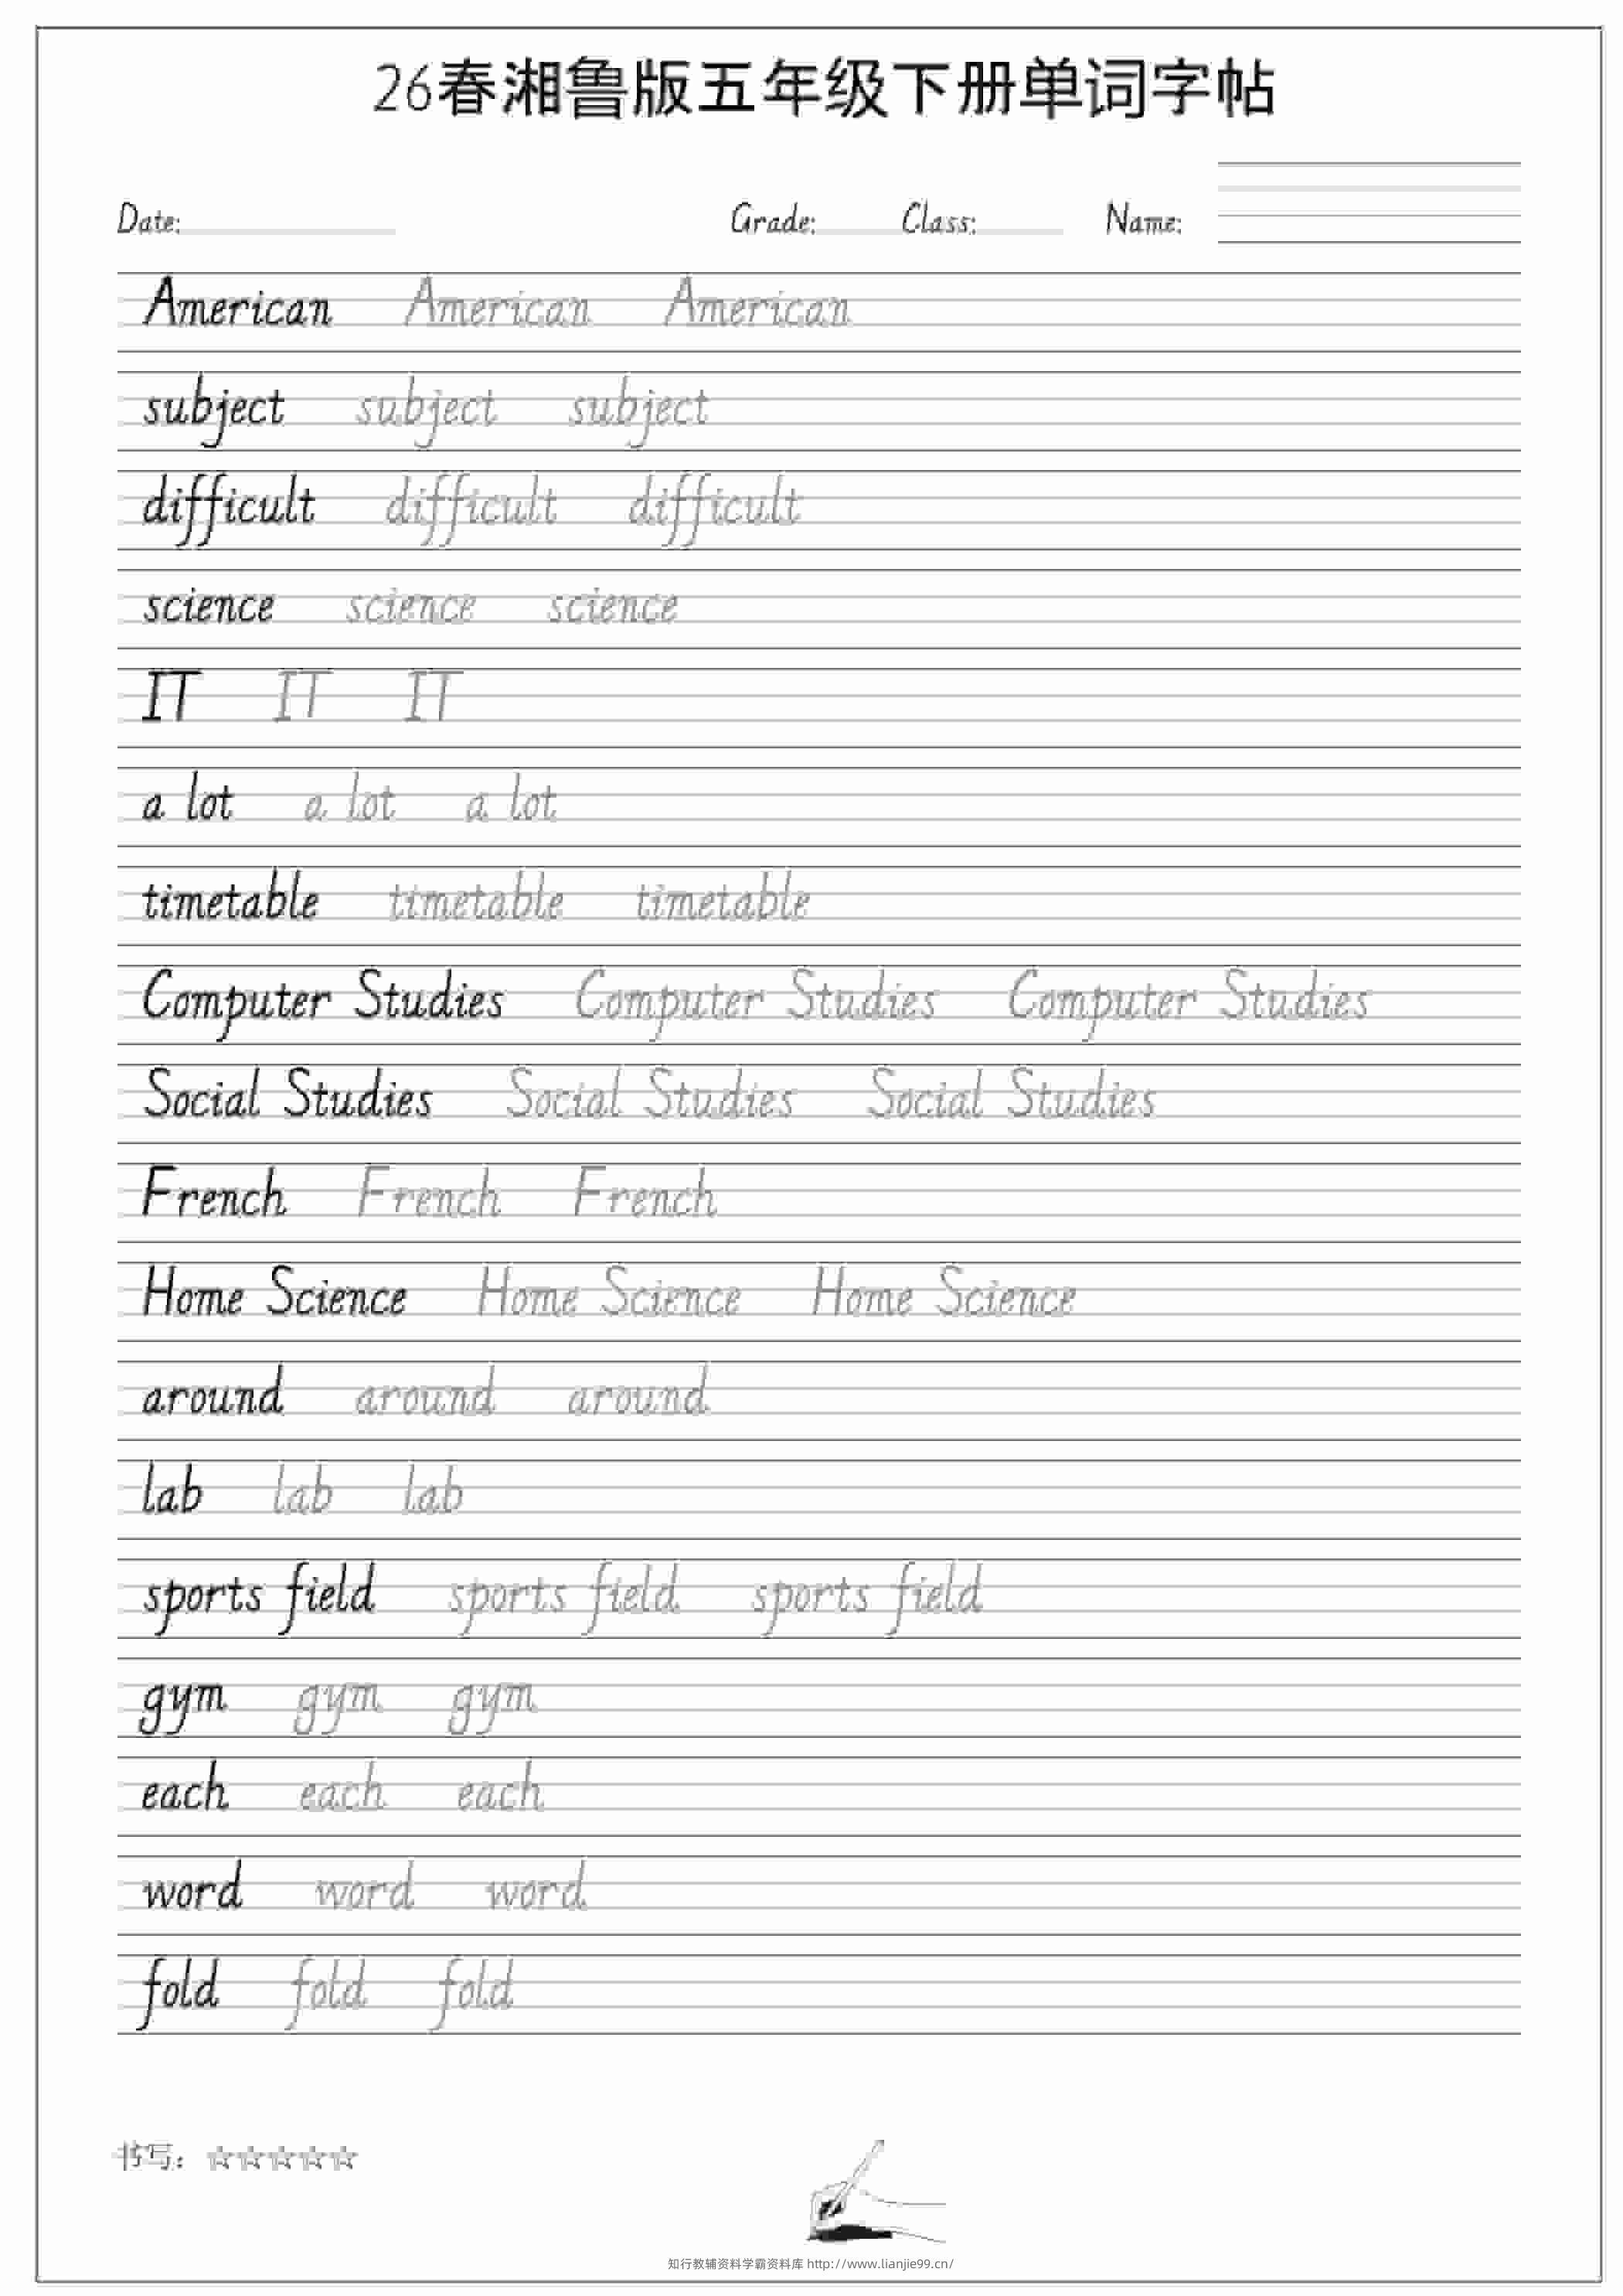 26春湘鲁版五年级下册单词字帖
Date: Grade: Class: Name:
American American American
subject subject subject
difficult difficult difficult
science science science
IT IT IT
a lot a lot a lot
timetable timetable timetable
Computer Studies Computer Studies Computer Studies
Social Studies Social Studies Social Studies
French French French
Home Science Home Science Home Science
around around around
lab lab lab
sports field sports field sports field
gym gym gym
each each each
word word word
fold fold fold
书写：☆☆☆☆☆
知行教辅资料学霸资料库 http://www.lianjie99.cn/